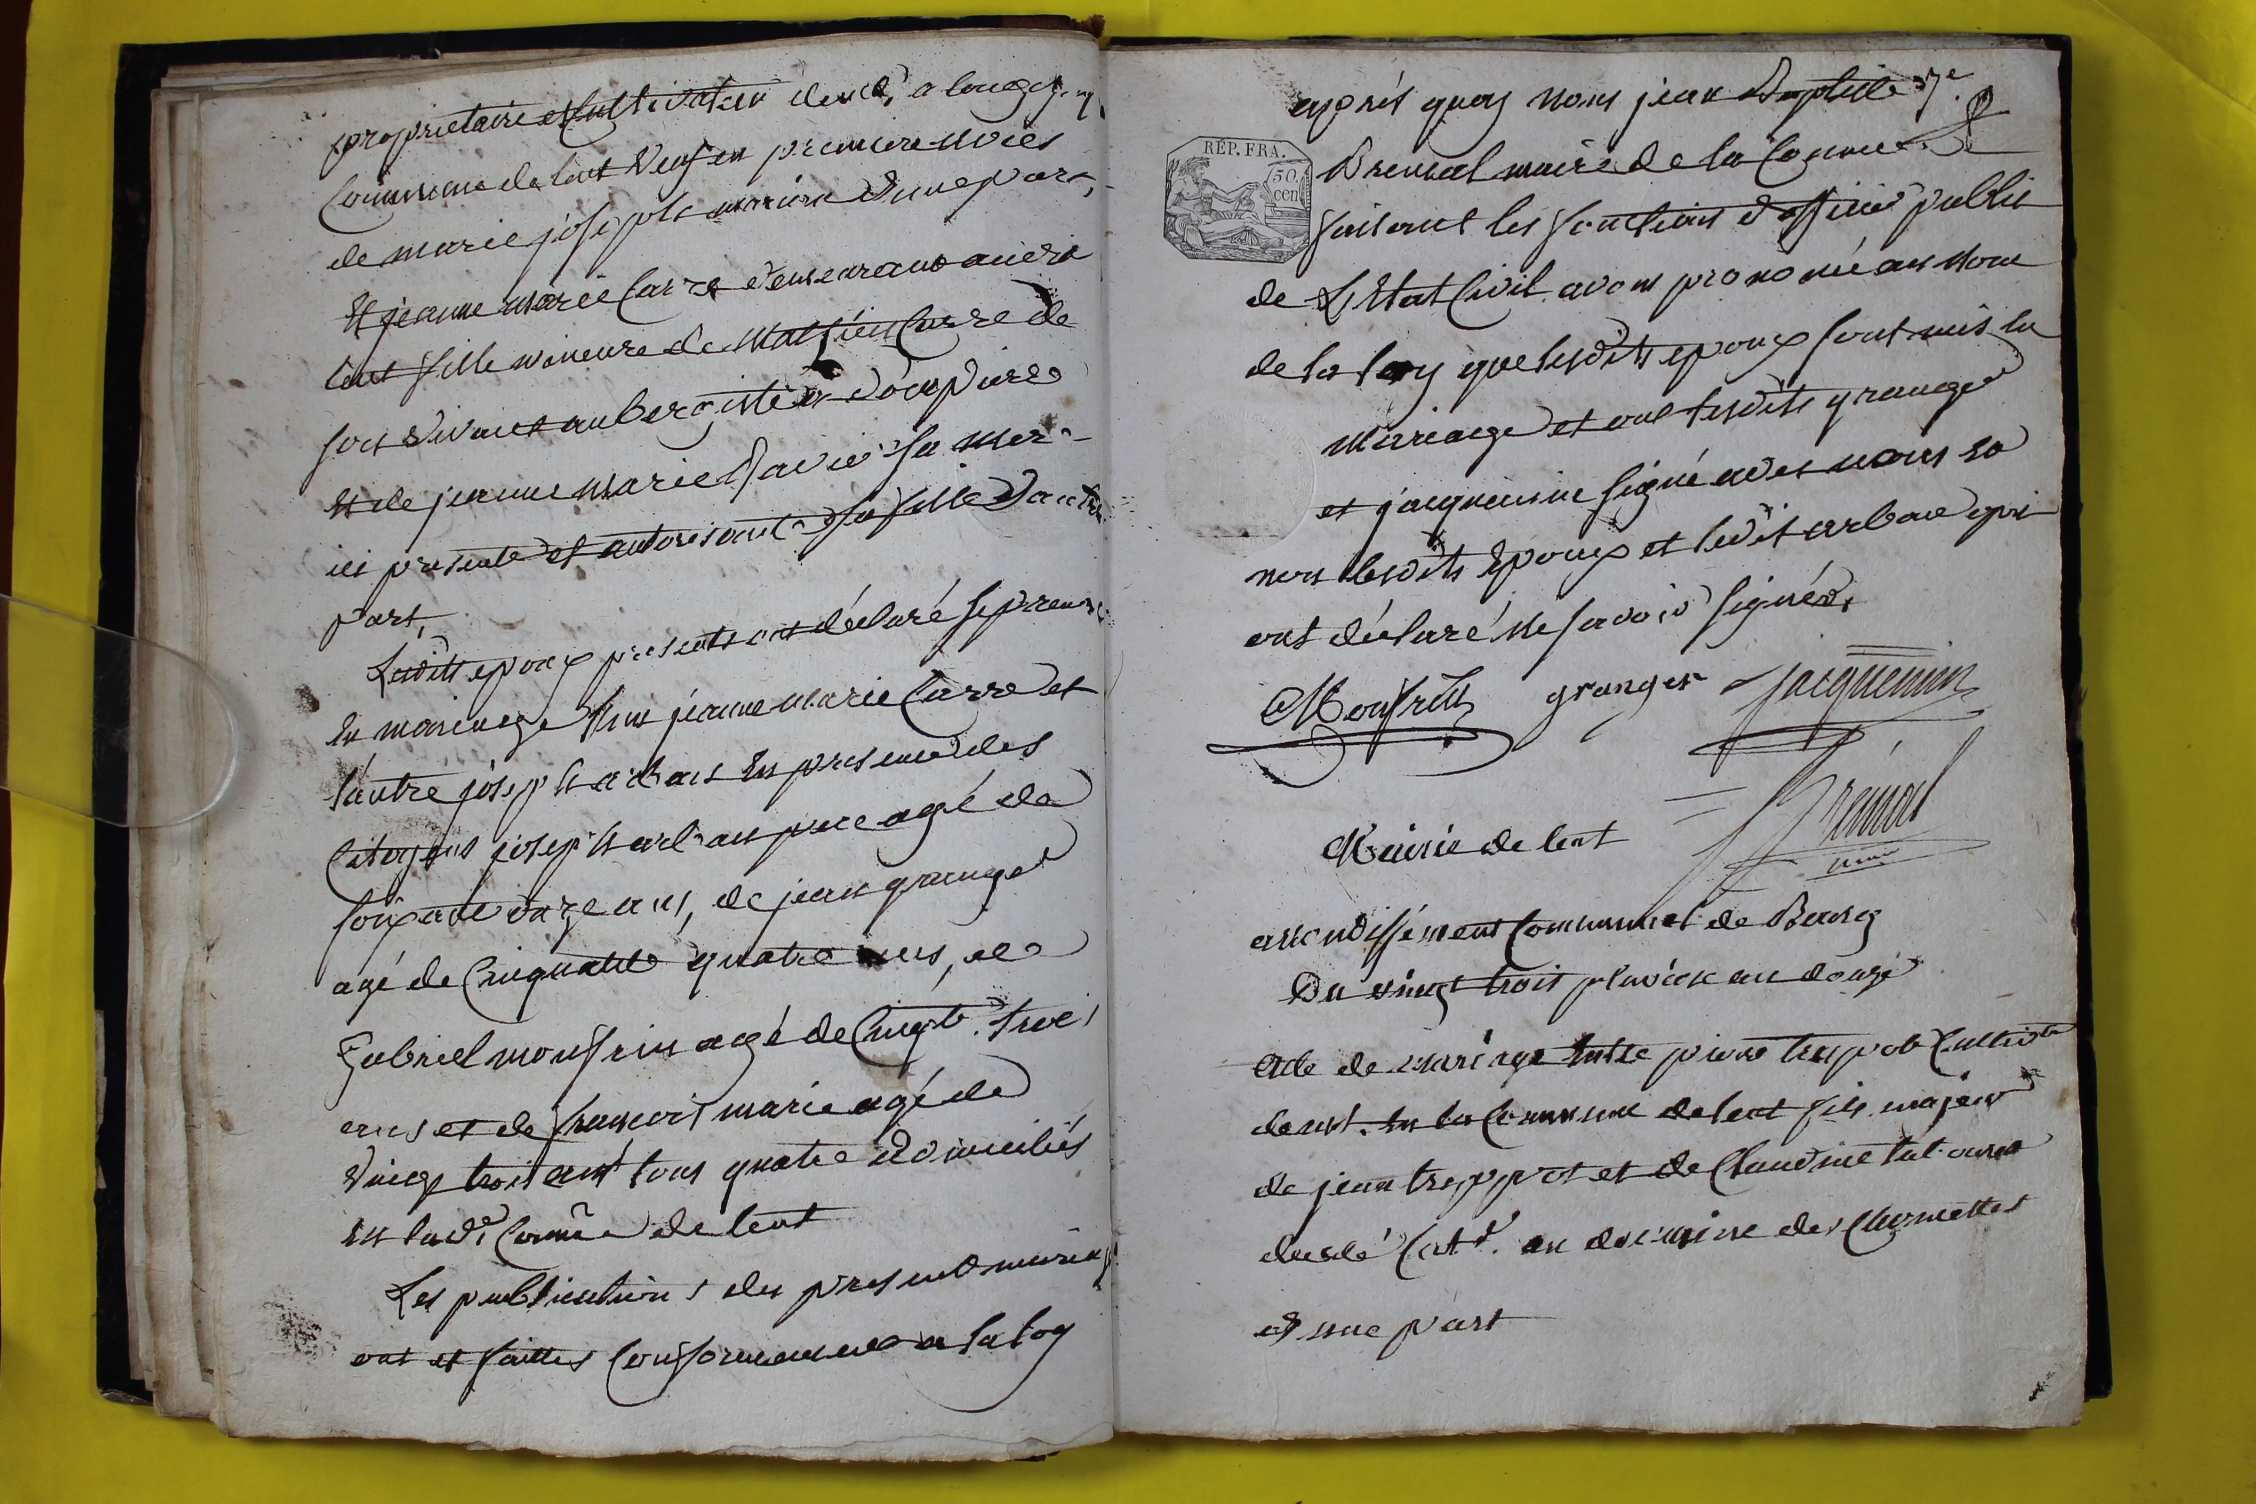 propriétaire et Cultivateur dem.t à longchamp
Commune de lent Veuf en premiere noces
de marie joseph moriere d'une part,
Et jeanne marie Carre demeurant audit
lent fille mineure de Mathieu Carre de
son vivant aubergiste a dompierre
Et de jeanne marie sa mere
ici presente et autorisant sa fille d'autre
part,
Lesdits epoux presents ont déclaré se prendre
En mariage l'un jeanne marie Carre et
l'autre joseph arban En presence des
Citoyens joseph arban pere agé de
soixante onze ans, de jean granger
agé de Cinquante quatre ans, de
Gabriel monfrin agé de Cinq.te trois
ans et de francois marie agé de
Vingt trois ans tous quatre domiciliés
En lad.e Comune de lent
Les publications du present mariage
ont et faittes Conformement a la loy
après quoy nous jean Baptiste
RÉP. FRA.
50 cen
Brenal maire de la Comune
faisant les fonctions d'officier public
de L'Etat Civil avons prononcé au nom
de la loy que lesdits epoux sont unis en
mariage et ont lesdits granger
et jacquemin signé avec nous
non lesdits Epoux et ledit arban qui
ont déclaré ne savoir signer,
Monfrin granger jacquemin
Mairie de lent Brenal
arrondissement Communal de Bourg
Du vingt trois pluviose an douze
Acte de mariage Entre pierre trippot Cultiv.r
dem.t En la Commune de lent fils majeur
de jean trippot et de Claudine
decedé Cat.e au domaine des Chomettes
d'une part